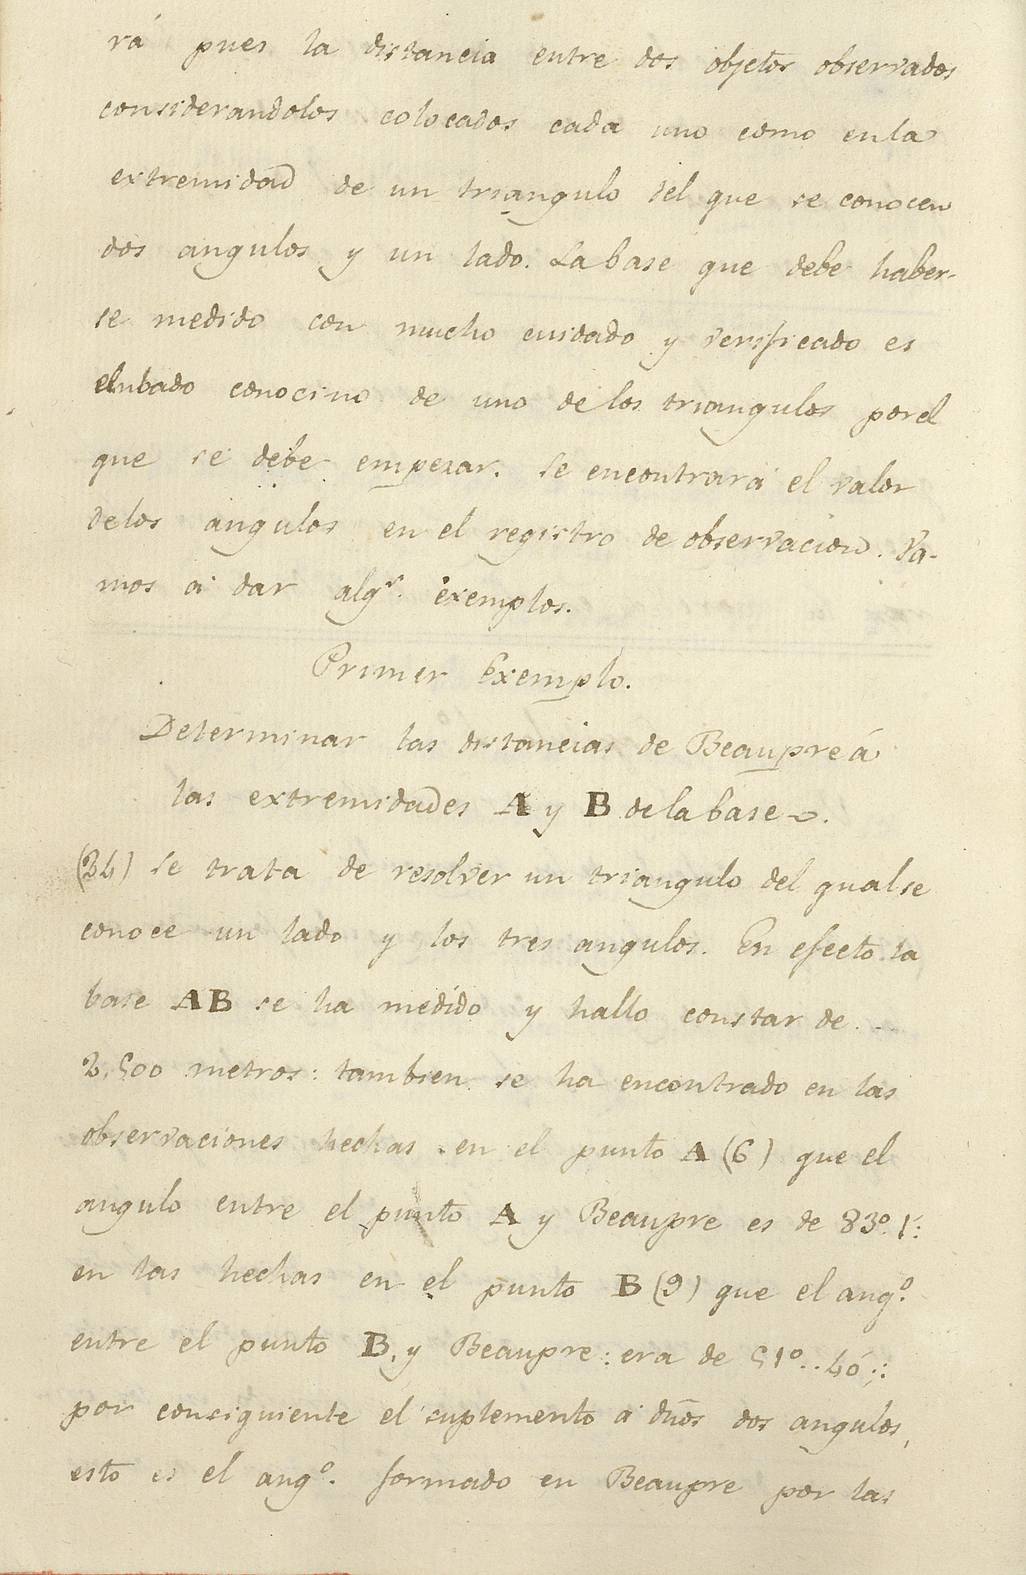 rá pues la distancia entre dos objetos observados
considerandolos colocados cada uno como en la
extremidad de un triangulo del que se conocen
dos angulos y un lado. La base que debe haber-
se medido con mucho cuidado y verificado es
conocino de uno de los triangulos por el
que se debe empezar. se encontrará el valor
delos angulos en el registro de observacion. Va-
mos á dar algs. exemplos.
Primer Exemplo.
Determinar las distancias de Beaupre á
las extremidades A y B de la base.
(34) se trata de resolver un triangulo del qual se
conoce un lado y los tres angulos. En efecto la
base AB se ha medido y hallo constar de..
2.500 metros: tambien se ha encontrado en las
observaciones hechas en el punto A (6) que el
angulo entre el punto A y Beaupre es de 83º. 1':
en las hechas en el punto B (9) que el angº.
entre el punto B, y Beaupre: era de 51º.. 40':
por consiguiente el suplemento á dhos dos angulos,
esto es el angº. formado en Beaupre por las